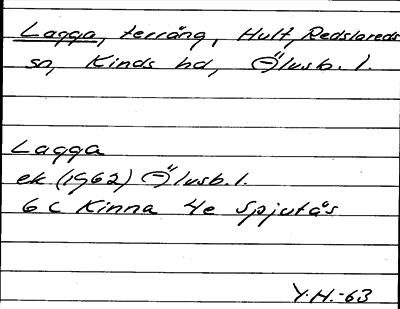 Lagga, terräng, Hult, Redslareds
sn, Kinds hd, Älvsb. l.
Lagga
ek (1962) Älvsb. l.
6 C Kinna 4e Spjutås
Y.H.-63